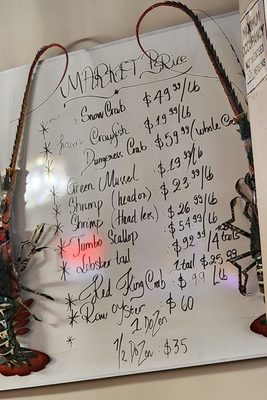 MARKET PRice
* Snow Crab : $49.99/Lb
* frozen Crawfish $19.99/Lb
Dungeness Crab : $59.99 (whole Crab)
* Green Mussel : $19.99/Lb
* Shrimp (head on) : $23.99/Lb
* Shrimp (Headless) : $26.99/Lb
* Jumbo Scallop $54.99/Lb
* Lobster tail $92.99/4 tails
1 tail $25.99
* Red King Crab : $99 Lb
* Raw oyster : $60
1 DoZen
* 1/2 DoZen : $35